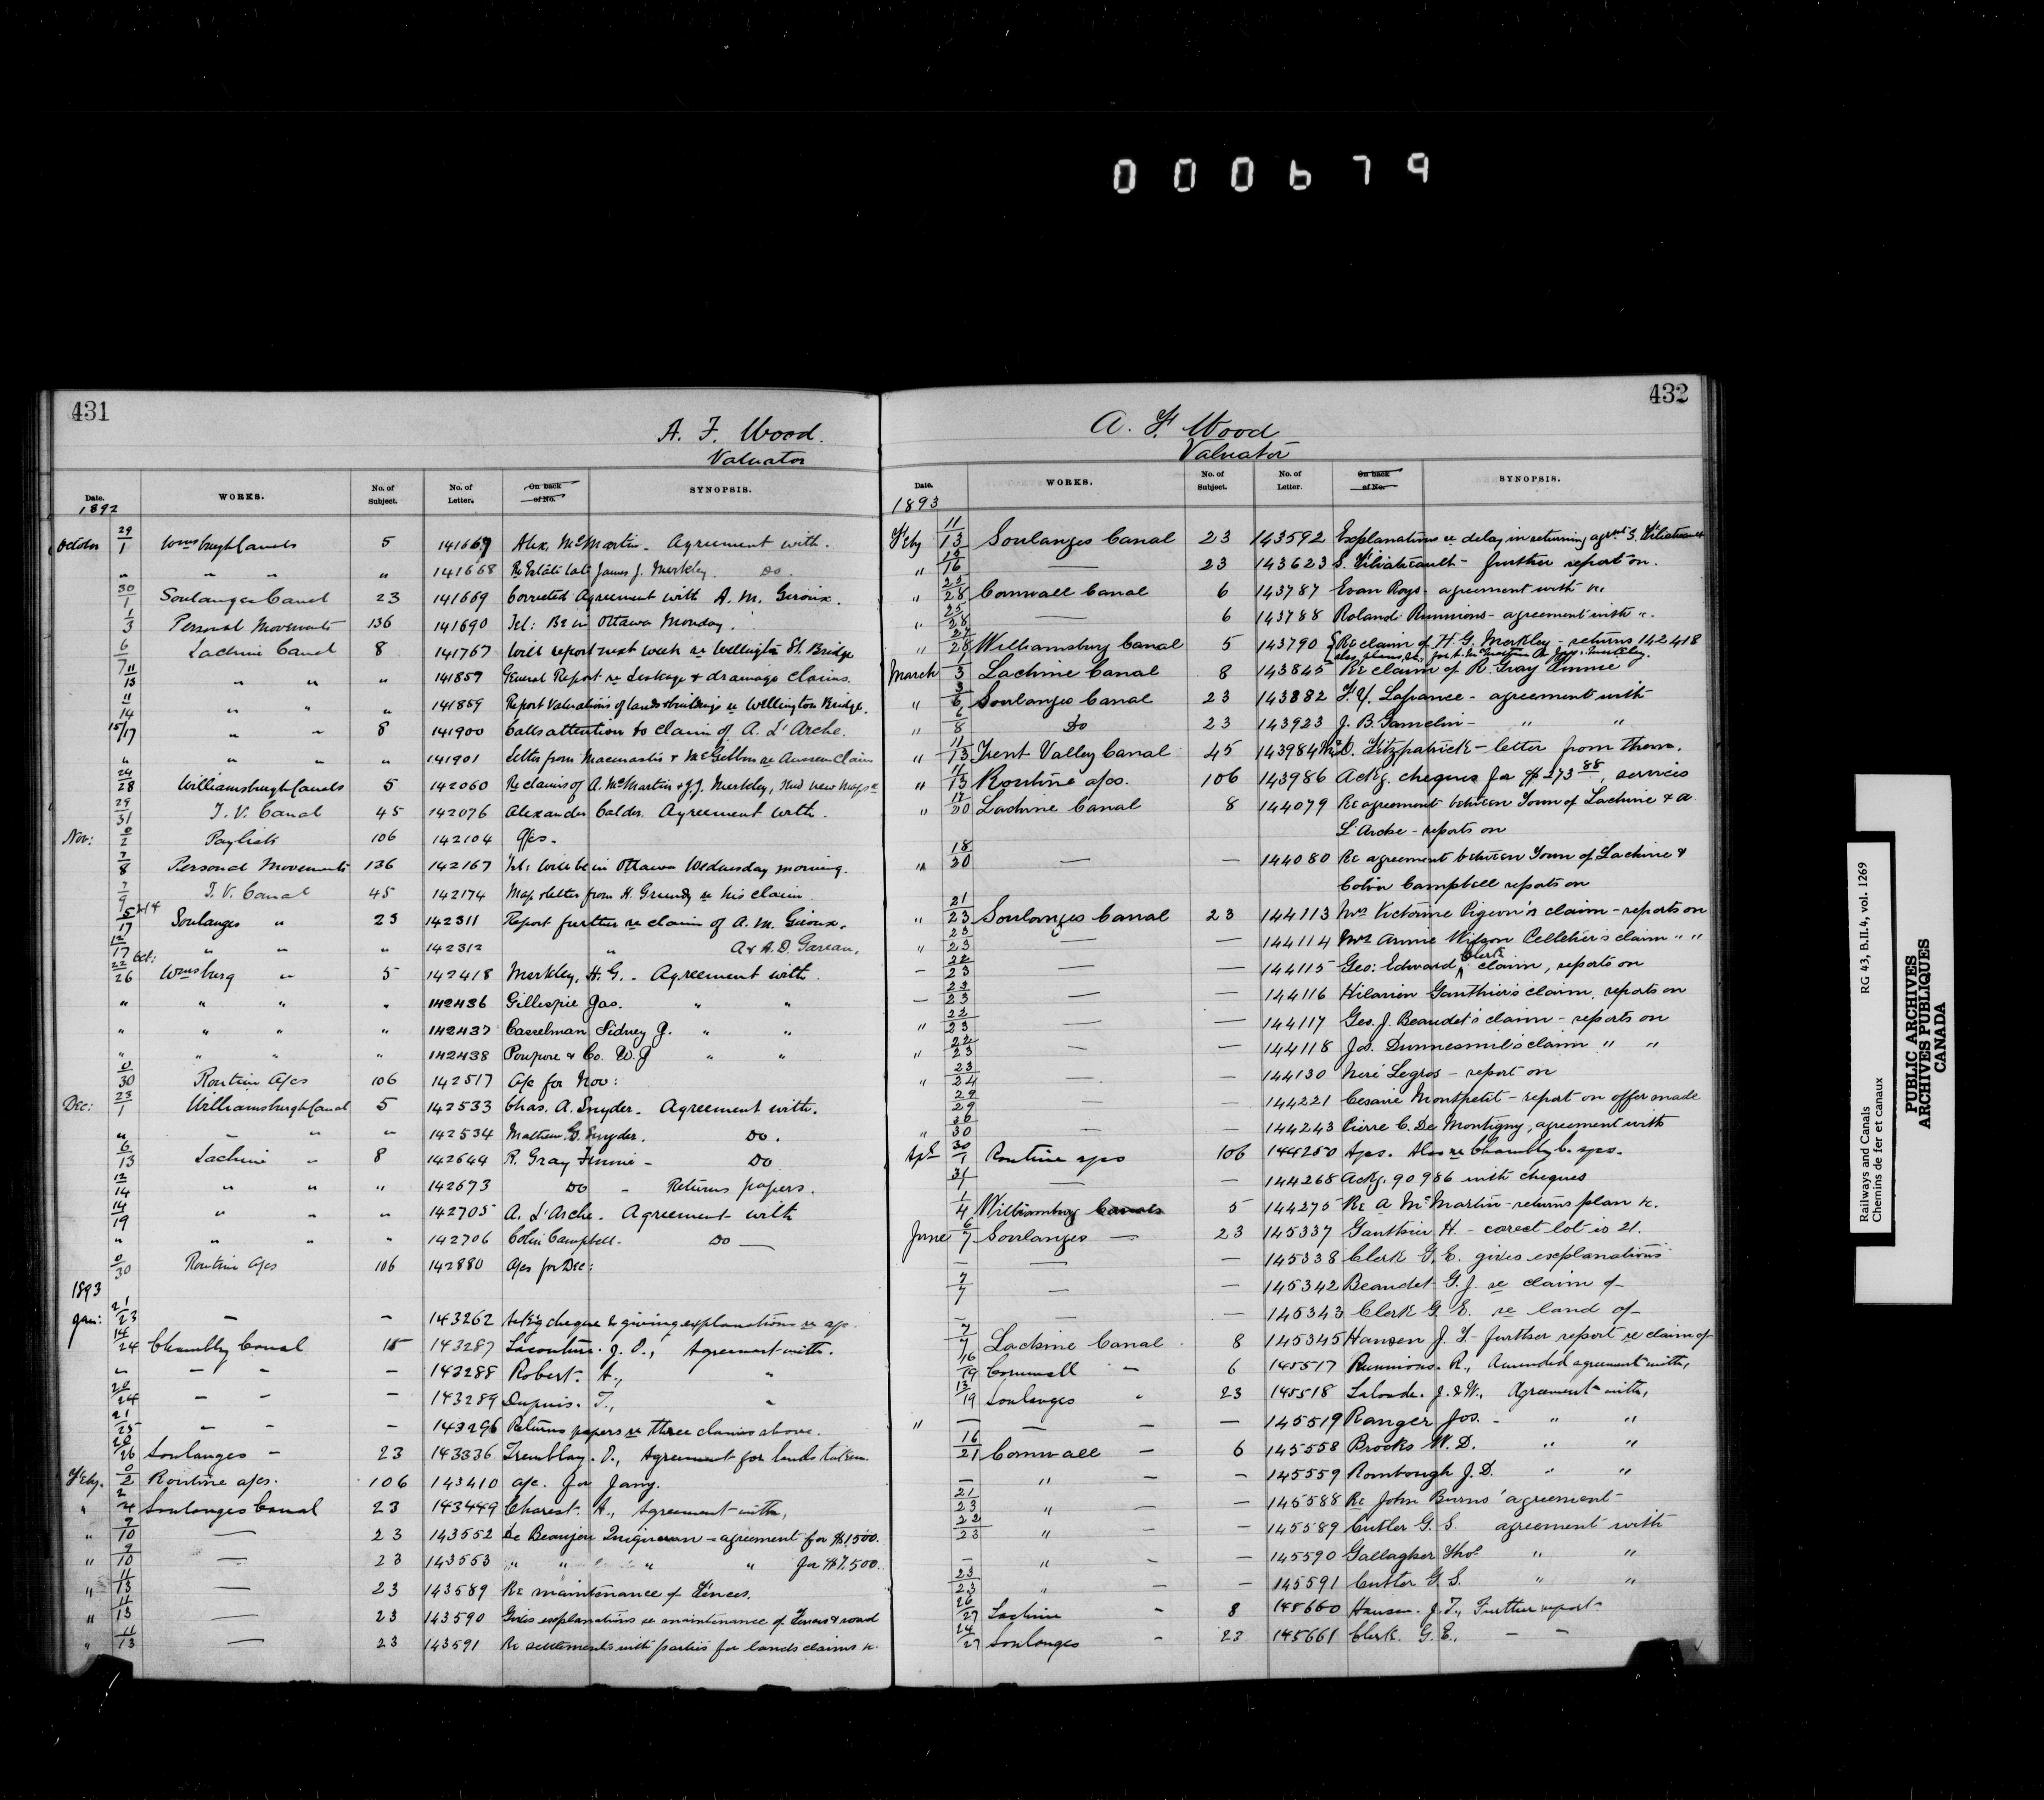 000679
431
A. F. Wood.
Valuator
Date. WORKS. No. of Subject. No. of Letter. On back of No. SYNOPSIS.
1892
October 29/1 Wmsburgh Canals 5 141667 Alex. McMartin - Agreement with.
" " " " 141668 Re Estate late James J. Merkley. Do.
30/1 Soulanges Canal 23 141669 Corrected Agreement with A. M. Giroux.
1/3 Personal Movements 136 141690 Tel: Be in Ottawa Monday.
6/7 Lachine Canal 8 141767 Will report next week re Wellington St. Bridge
11/13 " " " 141857 General Report re Leakage & drainage claims.
11/14 " " " 141859 Report Valuations of lands & buildings re Wellington Bridge.
15/17 " " 8 141900 Calls attention to claim of A. L'Arche.
" " " " 141901 Letter from Macmaster & McGibbon re claim
24/28 Williamsburgh Canals 5 142060 Re claims of A. McMartin & J.J. Merkley, New view Maps &
29/31 T. V. Canal 45 142076 Alexander Calder. Agreement with.
Nov: 0/2 Paylists 106 142104 a/cs.
7/8 Personal Movements 136 142167 Tel: Will be in Ottawa Wednesday morning.
7/9 T. V. Canal 45 142174 Map & letter from H. Grundy re his claim
5 & 14/17 Soulanges " 23 142311 Report further re claim of A. M. Giroux.
12/17 " " " 142312 " A & A. D. Gareau.
Oct: 22/26 Wmsburg " 5 142418 Merkley, H. G. - Agreement with
" " " " 142436 Gillespie Jas. " "
" " " " 142437 Casselman Sidney J. " "
" " " " 142438 Poupore & Co. W. J " "
0/30 Routine A/cs 106 142517 A/c for Nov:
Dec: 23/1 Williamsburgh Canal 5 142533 Chas. A. Snyder - Agreement with.
" " " " 142534 Mathew G. Snyder. Do.
6/13 Lachine " 8 142644 R. Gray Finnie - Do
12/14 " " " 142673 Do - Returns papers.
14/19 " " " 142705 A. L'Arche. Agreement with
" " " " 142706 Colin Campbell - Do —
0/30 Routine A/cs 106 142880 A/cs for Dec:
1893
Jan: 21/23 — — 143262 Ackg cheque & giving explanations re a/c.
14/24 Chambly Canal 15 143287 Lacouture. J. O., Agreement with.
" — — — 143288 Robert. H., "
20/24 — — — 143289 Dupuis. T., "
21/25 — — — 143296 Returns papers re three claims above.
20/26 Soulanges — 23 143336 Tremblay. O., Agreement for lands taken.
Feby. 0/2 Routine a/cs. 106 143410 a/c. for Jany.
" 2/4 Soulanges Canal 23 143449 Charest. H., Agreement with,
" 9/10 — 23 143552 de Beaujeu - agreement for $1500.
" 9/10 — 23 143553 " " " " for $7.500.
" 11/13 — 23 143589 Re maintenance of Fences.
" 11/13 — 23 143590 Gives explanations re maintenance of Fences & road
" 11/13 — 23 143591 Re settlements with parties for lands claims &c.
432
A. F. Wood
Valuator
Date. WORKS. No. of Subject. No. of Letter. On back of No. SYNOPSIS.
1893
Feby 11/13 Soulanges Canal 23 143592 Explanations re delay in returning agrmt S. Filiatreault
" 15/16 — 23 143623 S. Filiatreault - further report on.
" 25/28 Cornwall Canal 6 143787 Evan Roys - agreement with &c
" 25/28 — 6 143788 Roland Runnions - agreement with ".
" 27/28 Williamsburg Canal 5 143790 Re claim of H. G. Merkley - returns 142418
also plans &c, for A. McMartin & Jas. Merkley.
March 1/3 Lachine Canal 8 143845 Re claim of R. Gray Finnie
" 3/6 Soulanges Canal 23 143882 F. X. Lafrance - agreement with
" 6/8 Do 23 143923 J. B. Gamelin - " "
" 11/13 Trent Valley Canal 45 143984 D. Fitzpatrick - letter from them.
" 11/13 Routine a/cs. 106 143986 Ackg. cheques for $273.88, services
" 17/20 Lachine Canal 8 144079 Re agreement between Town of Lachine & A.
L'Arche - reports on
" 18/20 — — 144080 Re agreement between Town of Lachine &
Colin Campbell reports on
" 21/23 Soulanges Canal 23 144113 Mrs Victorine Pigeon's claim - reports on
" 23/23 — — 144114 Mrs Annie Wilson Pelletier's claim " "
– 22/23 — — 144115 Geo: Edward Clerk claim, reports on
— 22/23 — — 144116 Hilarien Gauthier's claim, reports on
" 22/23 — — 144117 Geo. J. Beaudet's claim - reports on
" 22/23 — — 144118 Jos. claim " "
" 23/24 — — 144130 Neré Legros - report on
29/29 — — 144221 Cesaire Montpetit - report on offer made
" 30/30 — — 144243 Pierre C. De Montigny, agreement with
Apl 30/1 Routine a/cs 106 144250 A/cs. Also re Chambly C. a/cs.
31/1 — — 144268 Ackg. 90986 with cheques
1/4 Williamsburg Canals 5 144275 Re A McMartin - returns plan &c.
June 6/7 Soulanges — 23 145337 Gauthier H - correct lot is 21.
— — — 145338 Clerk G. E. gives explanations
7/7 — — 145342 Beaudet G. J. re claim of
— — 145343 Clerk G. E. re land of
7/1 Lachine Canal 8 145345 Hansen J. T. - further report re claim of
16/19 Cornwall — 6 145517 Runnions. R., Amended agreement with,
13/19 Soulanges " 23 145518 Lalonde. J. & W., Agreement with,
" — — — — 145519 Ranger Jos. - " "
16/21 Cornwall — 6 145558 Brooks W. D. " "
— " — — 145559 Rombough J. D. " "
21/23 " — — 145588 Re John Burns' agreement -
22/23 " — — 145589 Cutler G. S. agreement with
— " — — 145590 Gallagher Thos " "
23/23 " — — 145591 Cutler G. S. " "
26/27 Lachine — 8 145660 Hansen. J. T., Further report -
24/27 Soulanges — 23 145661 Clerk. G. E., — —
Railways and Canals RG 43, B.II.4, vol. 1269
Chemins de fer et canaux
PUBLIC ARCHIVES
ARCHIVES PUBLIQUES
CANADA